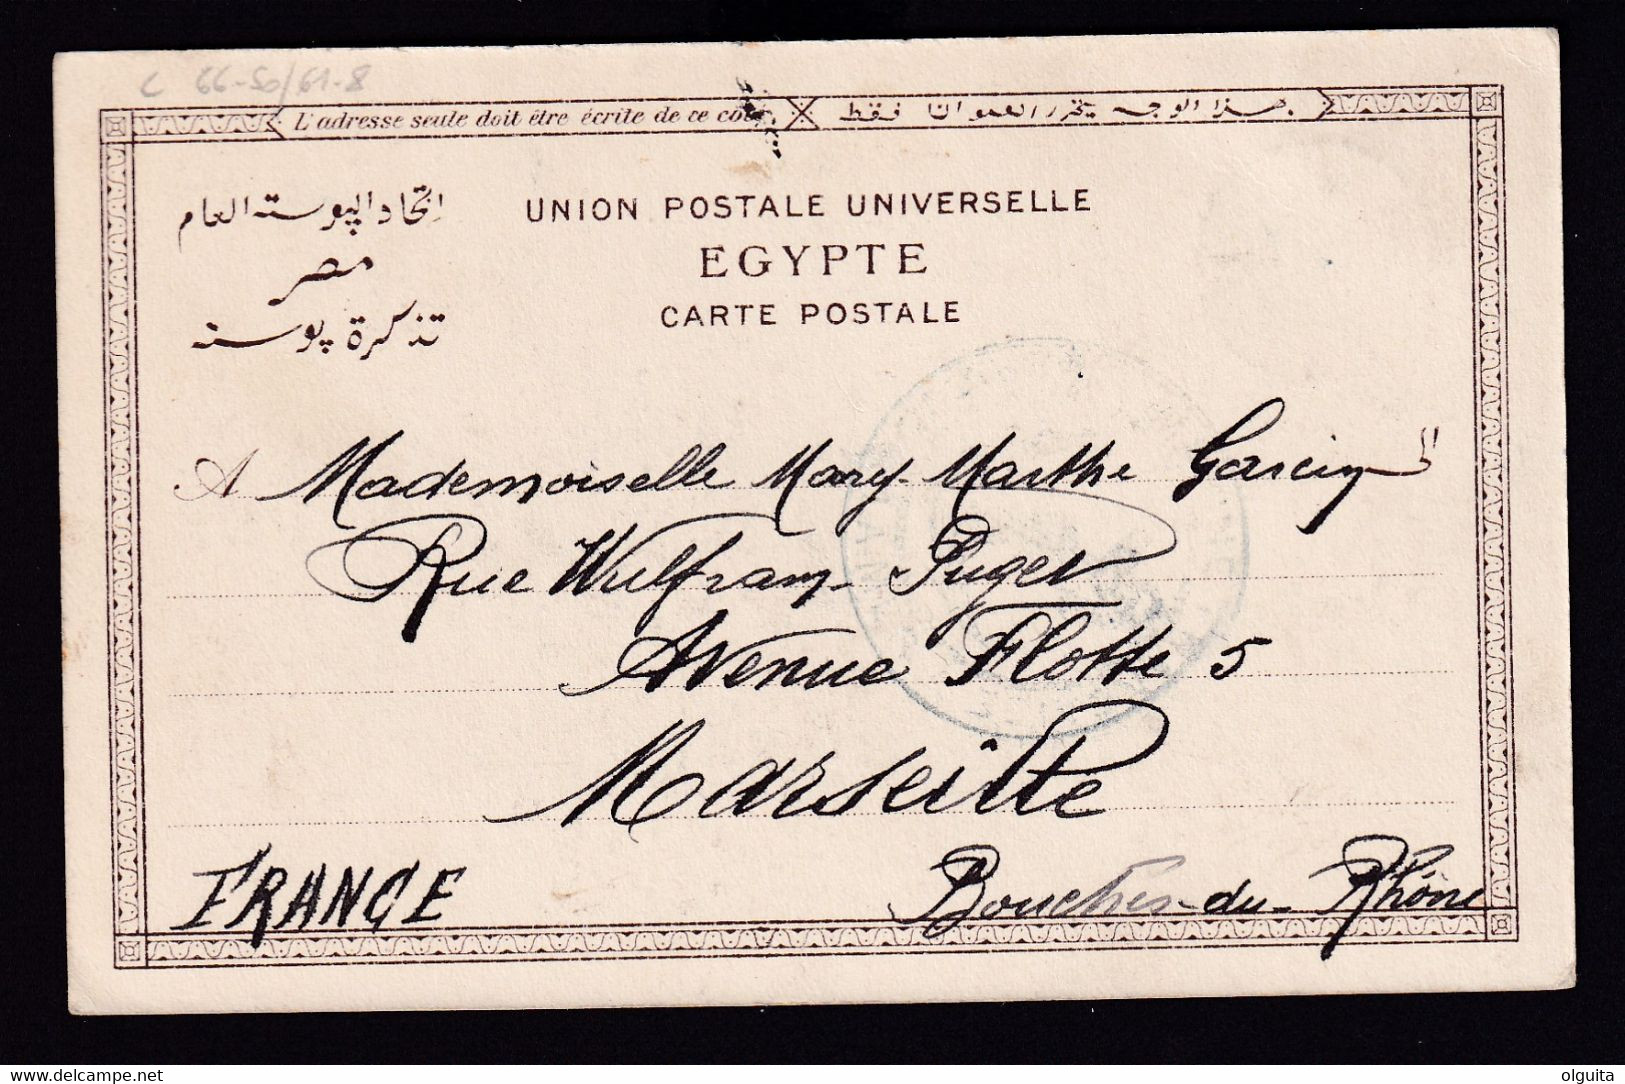 L'adresse seule doit être écrite de ce côté هذا الوجه يحرر العنوان فقط
اتحاد البوسته العام
مصر
تذكرة پوسته
UNION POSTALE UNIVERSELLE
EGYPTE
CARTE POSTALE
A Mademoiselle Mary-Marthe Garcin
Rue Wulfram-Puget
Avenue Flotte 5
Marseille
FRANCE
Bouches-du-Rhône
olguita